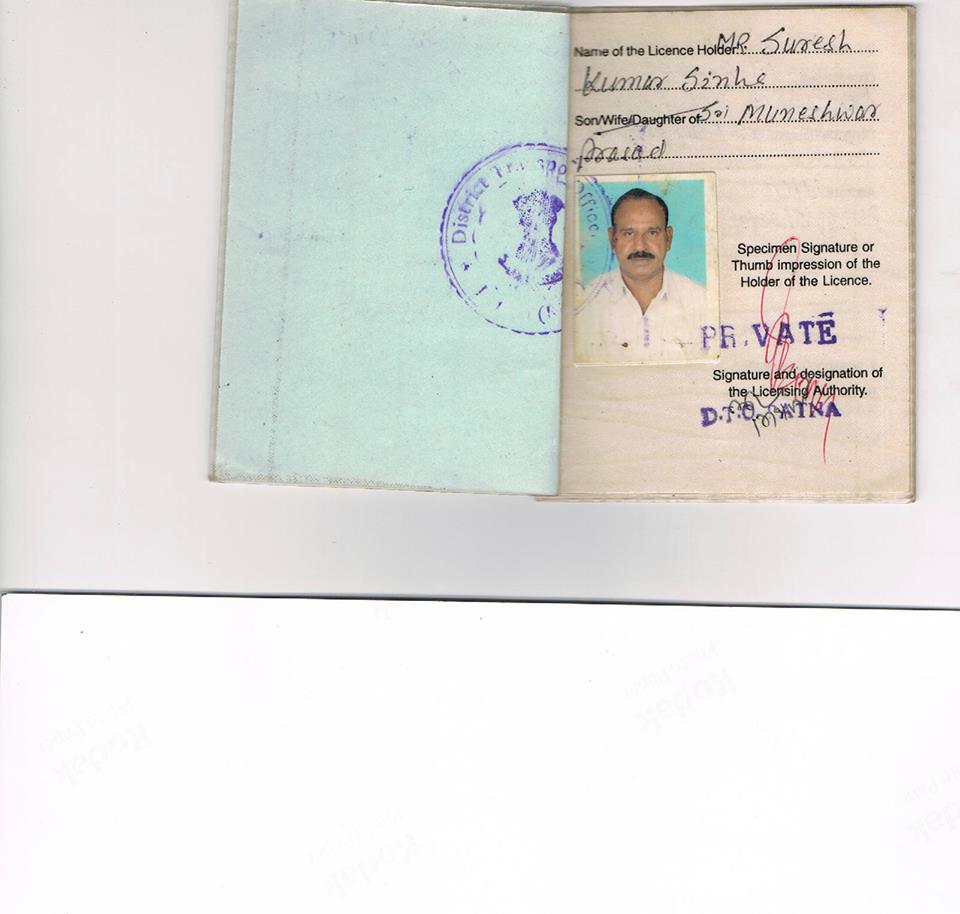 Name of the Licence Holder: Mr. Suresh
Kumar Sinhe
Son/Wife/Daughter of Sri Muneshwar
Prasad
District Transport Office
Specimen Signature or
Thumb impression of the
Holder of the Licence.
PRIVATE
Signature and designation of
the Licensing Authority.
D.T.O. PATNA
Kodak
Kodak
Kodak
Kodak